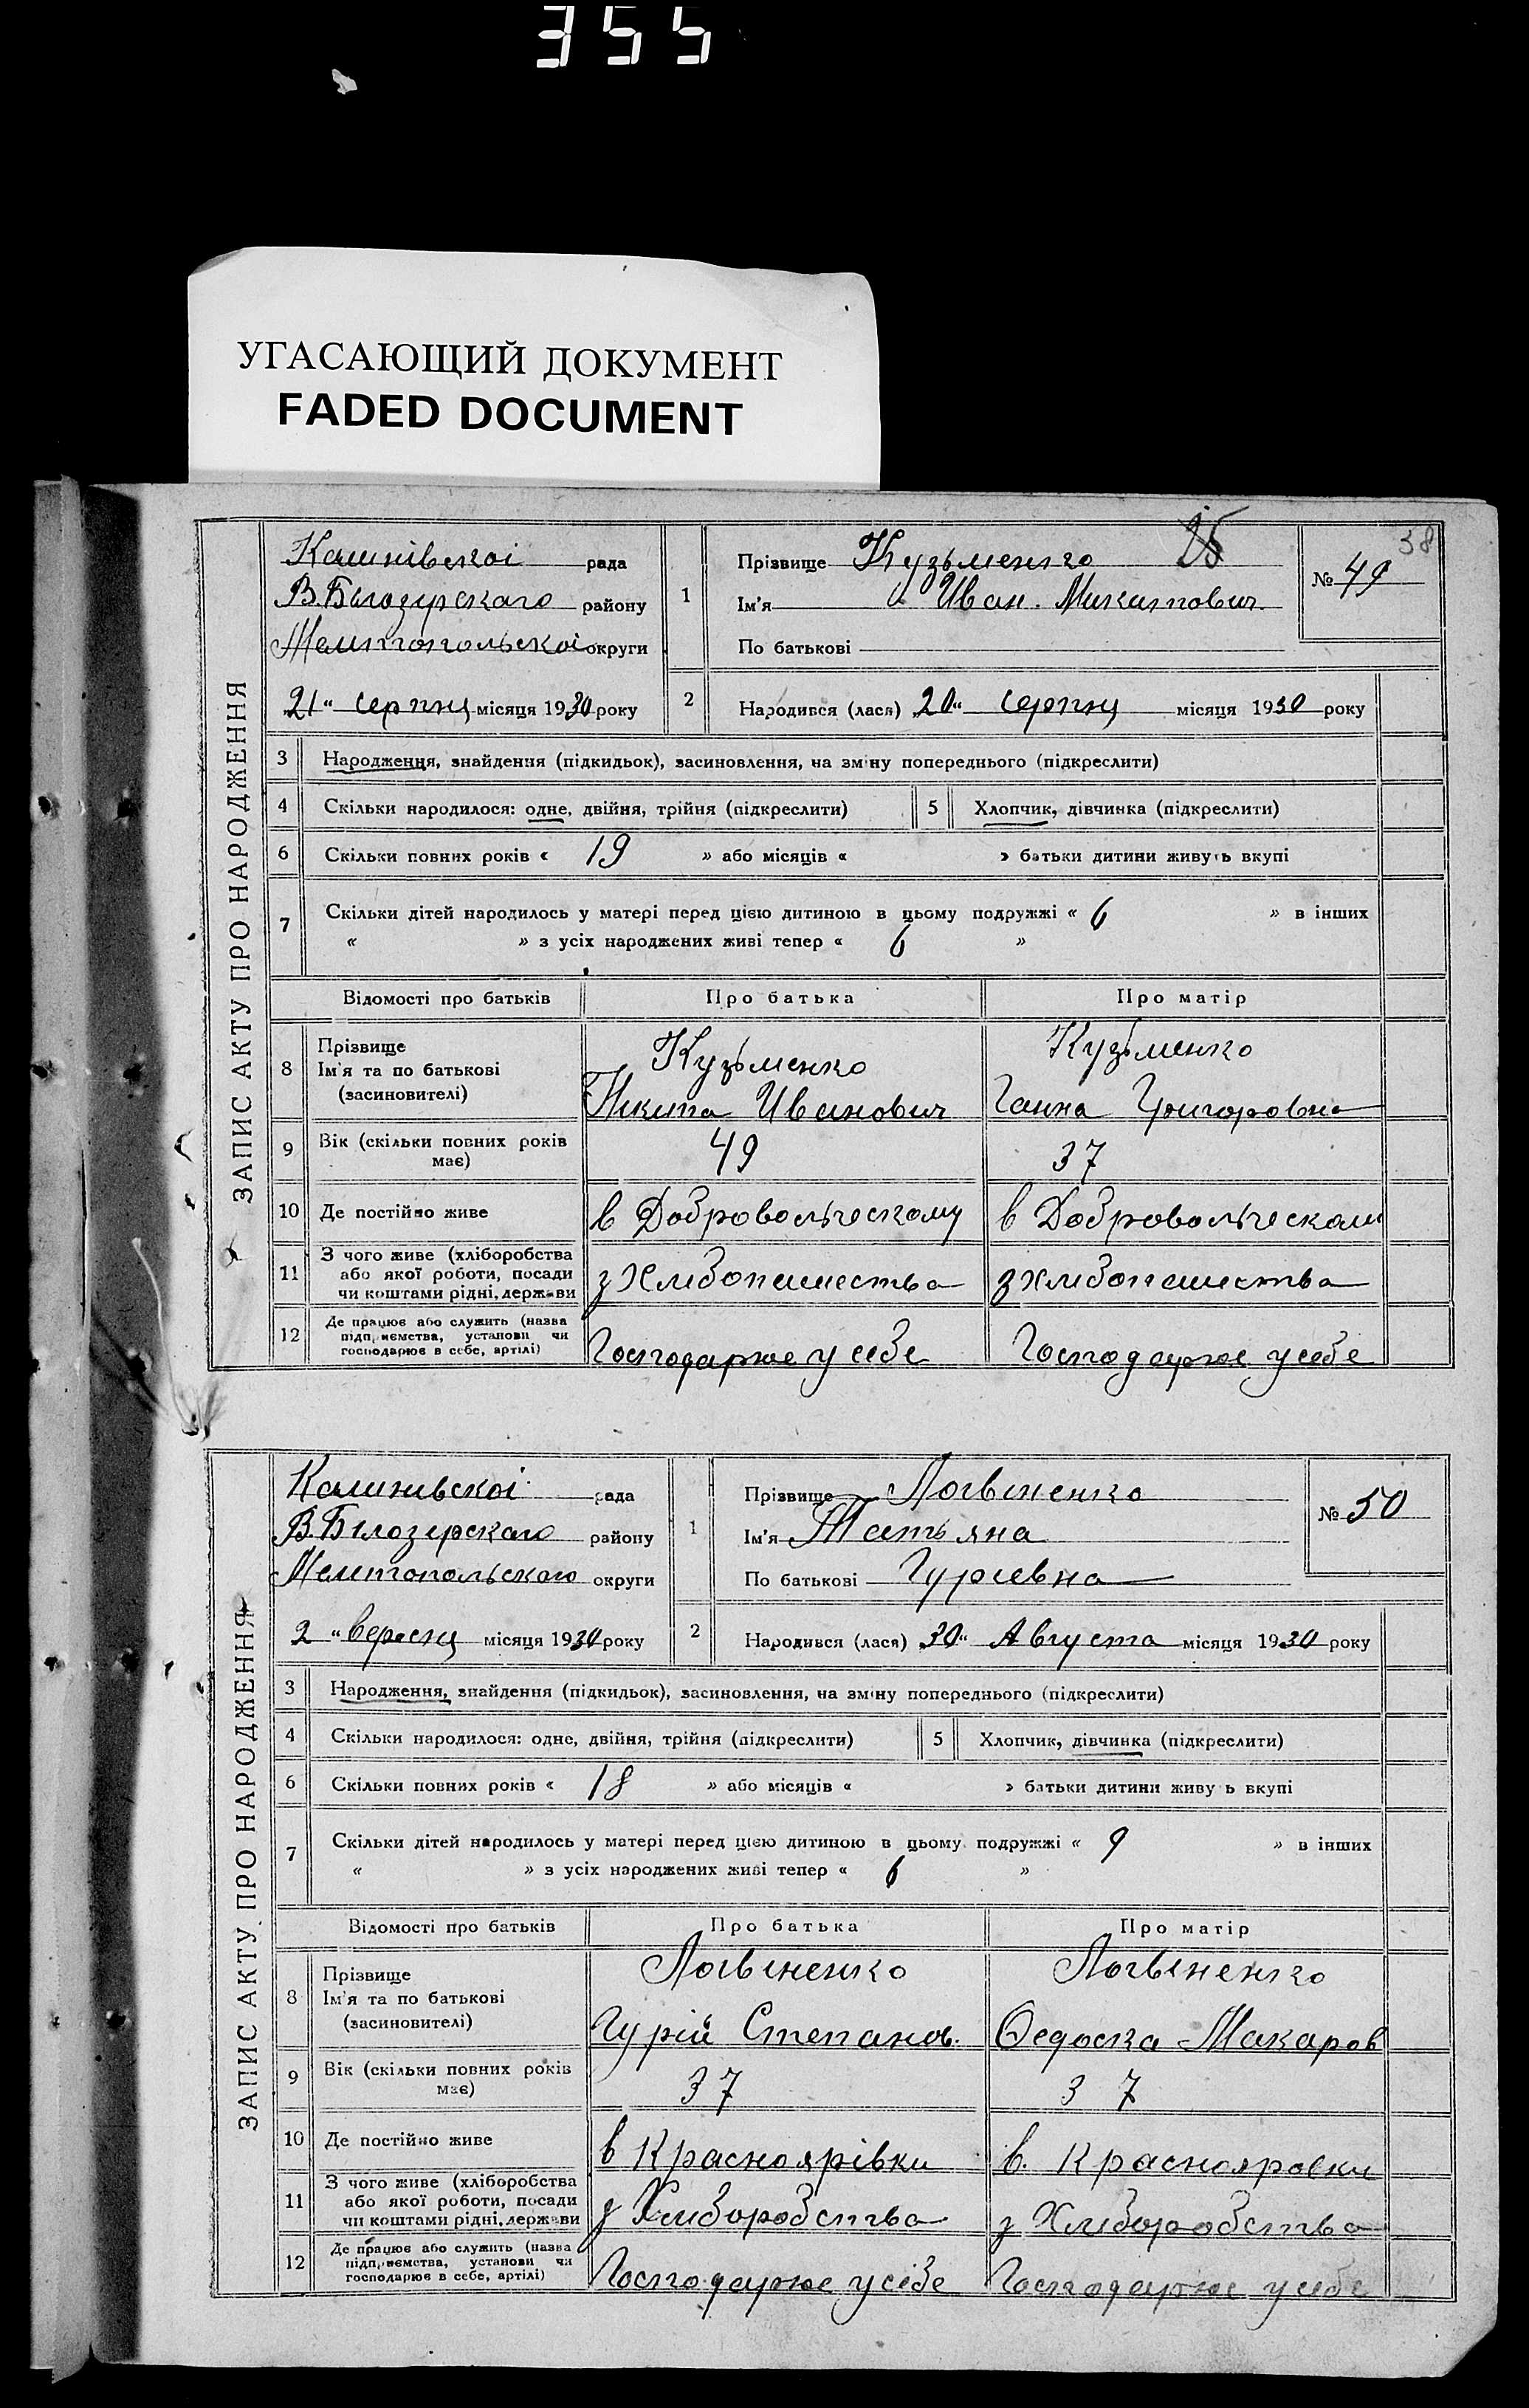 355
УГАСАЮЩИЙ ДОКУМЕНТ
FADED DOCUMENT
38
ЗАПИС АКТУ ПРО НАРОДЖЕННЯ
рада
В.Білозерского району
округи
21" серпня місяця 1930 року
1
Прізвище Кузьменко
Ім'я Иван. Микитович
По батькові
№ 49
2
Народився (лася) 20" серпня місяця 1930 року
3 Народження, знайдення (підкидьок), засиновлення, на зміну попереднього (підкреслити)
4 Скільки народилося: одне, двійня, трійня (підкреслити) 5 Хлопчик, дівчинка (підкреслити)
6 Скільки повних років « 19 » або місяців « » батьки дитини живуть вкупі
7 Скільки дітей народилось у матері перед цією дитиною в цьому подружжі « 6 » в інших
« » з усіх народжених живі тепер « 6 »
Відомості про батьків Про батька Про матір
8 Прізвище Ім'я та по батькові (засновителі)
Кузьменко Кузьменко
Никита Иванович Ганна Григоровна
9 Вік (скільки повних років має) 49 37
10 Де постійно живе в Добровольческому в Добровольческом
11 З чого живе (хліборобства або якої роботи, посади чи коштами рідні, держави з Хлібопашества з хлібопашества
12 Де працює або служить (назва підприємства, установи чи господарює в себе, артілі) Господарює у себе Господарює у себе
ЗАПИС АКТУ ПРО НАРОДЖЕННЯ
Калинівскоі рада
В.Білозерскаго району
Мелитопольскаго округи
2 " вересня місяця 1930 року
1
Прізвище Логвененко
Ім'я Татьяна
По батькові Гуріевна
№ 50
2
Народився (лася) 30" Августа місяця 1930 року
3 Народження, знайдення (підкидьок), засиновлення, на зміну попереднього (підкреслити)
4 Скільки народилося: одне, двійня, трійня (підкреслити) 5 Хлопчик, дівчинка (підкреслити)
6 Скільки повних років « 18 » або місяців « » батьки дитини живу ь вкупі
7 Скільки дітей народилось у матері перед цією дитиною в цьому подружжі « 9 » в інших
« » з усіх народжених живі тепер « 6 »
Відомості про батьків Про батька Про матір
8 Прізвище Ім'я та по батькові (засиновителі)
Логвененко Логвененко
Гурій Степанов. Федоска Макаров
9 Вік (скільки повних років має) 37 37
10 Де постійно живе в Красноярівки в. Краснояровки
11 З чого живе (хліборобства або якої роботи, посади чи коштами рідні, держави з Хліборобства з Хліборобства
12 Де працює або служить (назва підприємства, установи чи господарює в себе, артілі) Господарює у себе Господарює у себе